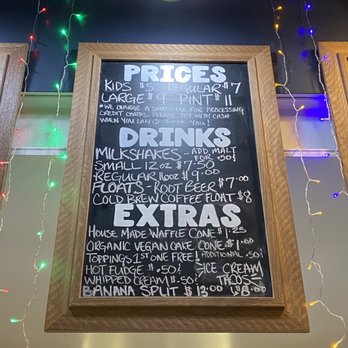 PRICES
KIDS $5 REGULAR $7
LARGE $9 PINT $11
* WE CHARGE A SMALL FEE FOR PROCESSING
CREDIT CARDS. PLEASE PAY WITH CASH
WHEN YOU CAN. THANK YOU!
DRINKS
MILKSHAKES - ADD MALT
FOR .50¢
SMALL 12oz $7.50
REGULAR 16oz $9.00
FLOATS - ROOT BEER $7.00
COLD BREW COFFEE FLOAT $8
EXTRAS
HOUSE MADE WAFFLE CONE $1.25
ORGANIC VEGAN CAKE CONE $1.00
TOPPINGS 1ST ONE FREE! ADDITIONAL .50¢
HOT FUDGE $.50¢
ICE CREAM
WHIPPED CREAM $.50¢
TACOS
BANANA SPLIT $13.00
$8.00